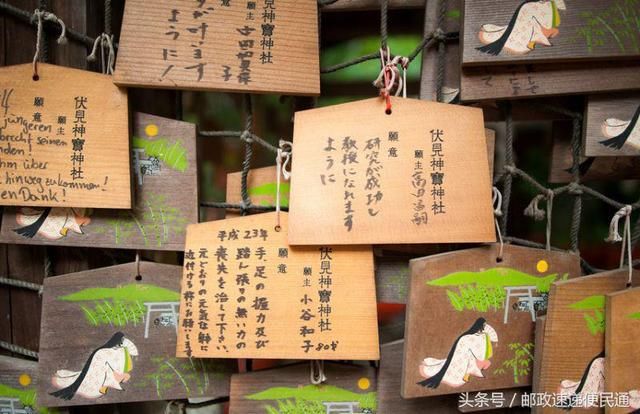 伏見神寶神社
願主
願意
が叶います
ように!
伏見神寶神社
願主
願意
jüngeren
brecht seinen
ihm über
hinweg zukommen!
en Dank!
伏見神寶神社
願主
願意
研究が成功し
教授になれます
ように
伏見神寶神社
願主 小谷和子 80才
願意
平成23年
手、足の握力及び
踏ん張りの無い力の
喪失を治して下さい。
元どおりの元気な体に
近付ける様にお願いします
头条号 / 邮政速递便民通